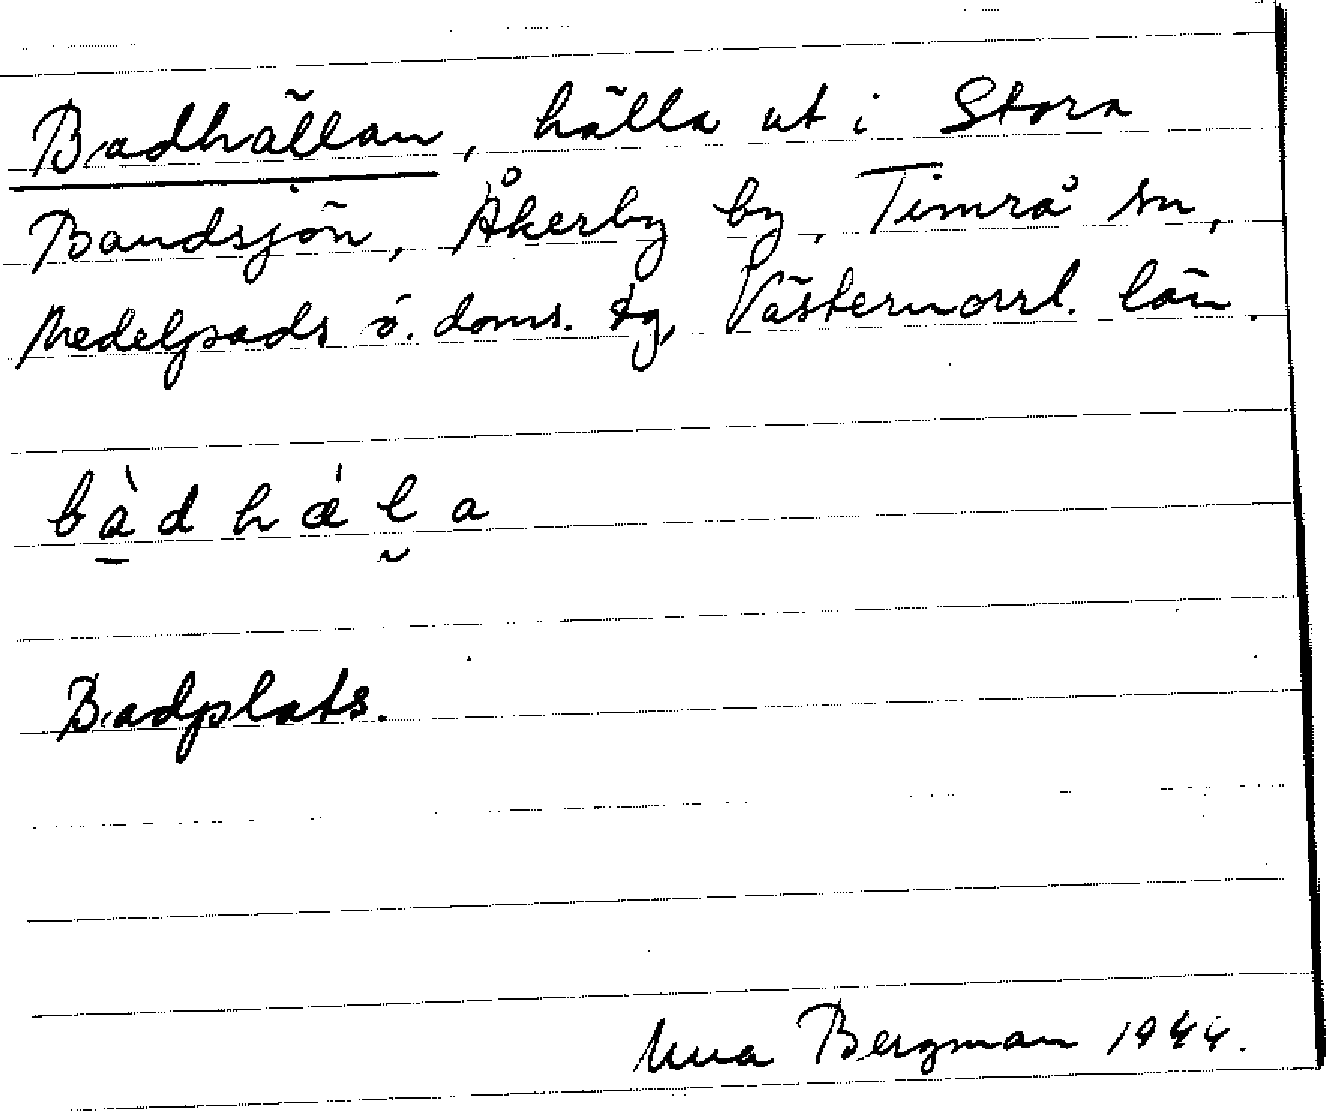 Badhällan, hälla ut i Stora
Bandsjön, Åkerby by, Timrå sn,
Medelpads ö. doms. tg, Västernorrl. län.
bàdhǽla
Badplats.
Bergman 1944.